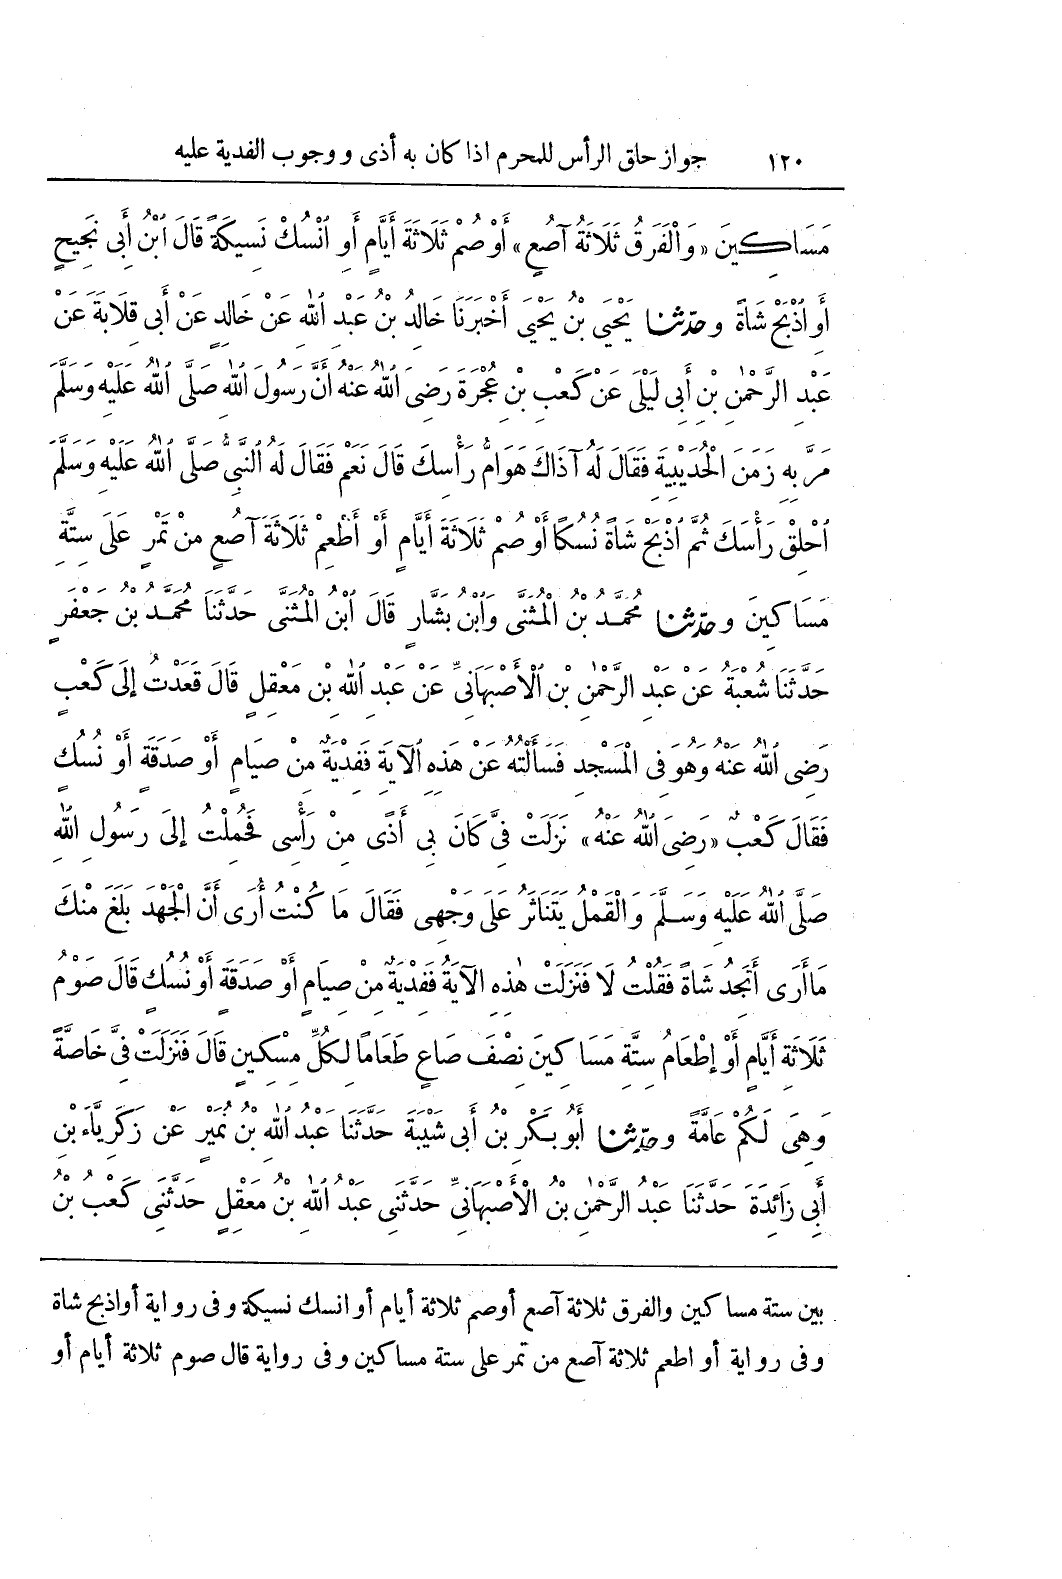 ١٢٠ جواز حلق الرأس للمحرم اذا كان به أذى ووجوب الفدية عليه
مَسَاكِينَ «وَالْفَرَقُ ثَلَاثَةُ آصُعٍ» أَوْ صُمْ ثَلَاثَةَ أَيَّامٍ أَوِ انْسُكْ نَسِيكَةً قَالَ ابْنُ أَبِى نَجِيحٍ
أَوِ اذْبَحْ شَاةً وحدثنا يَحْيَى بْنُ يَحْيَى أَخْبَرَنَا خَالِدُ بْنُ عَبْدِ اللهِ عَنْ خَالِدٍ عَنْ أَبِى قِلَابَةَ عَنْ
عَبْدِ الرَّحْمٰنِ بْنِ أَبِى لَيْلَى عَنْ كَعْبِ بْنِ عُجْرَةَ رَضِىَ اللهُ عَنْهُ أَنَّ رَسُولَ اللهِ صَلَّى اللهُ عَلَيْهِ وَسَلَّمَ
مَرَّ بِهِ زَمَنَ الْحُدَيْبِيَةِ فَقَالَ لَهُ آذَاكَ هَوَامُّ رَأْسِكَ قَالَ نَعَمْ فَقَالَ لَهُ النَّبِىُّ صَلَّى اللهُ عَلَيْهِ وَسَلَّمَ
احْلِقْ رَأْسَكَ ثُمَّ اذْبَحْ شَاةً نُسُكًا أَوْ صُمْ ثَلَاثَةَ أَيَّامٍ أَوْ أَطْعِمْ ثَلَاثَةَ آصُعٍ مِنْ تَمْرٍ عَلَى سِتَّةِ
مَسَاكِينَ وحدثنا مُحَمَّدُ بْنُ الْمُثَنَّى وَابْنُ بَشَّارٍ قَالَ ابْنُ الْمُثَنَّى حَدَّثَنَا مُحَمَّدُ بْنُ جَعْفَرٍ
حَدَّثَنَا شُعْبَةُ عَنْ عَبْدِ الرَّحْمٰنِ بْنِ الْأَصْبَهَانِىِّ عَنْ عَبْدِ اللهِ بْنِ مَعْقِلٍ قَالَ قَعَدْتُ إِلَى كَعْبٍ
رَضِىَ اللهُ عَنْهُ وَهُوَ فِى الْمَسْجِدِ فَسَأَلْتُهُ عَنْ هَذِهِ الْآيَةِ فَفِدْيَةٌ مِنْ صِيَامٍ أَوْ صَدَقَةٍ أَوْ نُسُكٍ
فَقَالَ كَعْبٌ «رَضِىَ اللهُ عَنْهُ» نَزَلَتْ فِىَّ كَانَ بِى أَذًى مِنْ رَأْسِى فَحُمِلْتُ إِلَى رَسُولِ اللهِ
صَلَّى اللهُ عَلَيْهِ وَسَلَّمَ وَالْقَمْلُ يَتَنَاثَرُ عَلَى وَجْهِى فَقَالَ مَا كُنْتُ أُرَى أَنَّ الْجَهْدَ بَلَغَ مِنْكَ
مَا أَرَى أَتَجِدُ شَاةً فَقُلْتُ لَا فَنَزَلَتْ هٰذِهِ الْآيَةُ فَفِدْيَةٌ مِنْ صِيَامٍ أَوْ صَدَقَةٍ أَوْ نُسُكٍ قَالَ صَوْمُ
ثَلَاثَةِ أَيَّامٍ أَوْ إِطْعَامُ سِتَّةِ مَسَاكِينَ نِصْفَ صَاعٍ طَعَامًا لِكُلِّ مِسْكِينٍ قَالَ فَنَزَلَتْ فِىَّ خَاصَّةً
وَهِىَ لَكُمْ عَامَّةً وحدثنا أَبُو بَكْرِ بْنُ أَبِى شَيْبَةَ حَدَّثَنَا عَبْدُ اللهِ بْنُ نُمَيْرٍ عَنْ زَكَرِيَّاءَ بْنِ
أَبِى زَائِدَةَ حَدَّثَنَا عَبْدُ الرَّحْمٰنِ بْنُ الْأَصْبَهَانِىِّ حَدَّثَنِى عَبْدُ اللهِ بْنُ مَعْقِلٍ حَدَّثَنِى كَعْبُ بْنُ
بين ستة مساكين والفرق ثلاثة آصع أوصم ثلاثة أيام أو انسك نسيكة وفى رواية أواذبح شاة
وفى رواية أو اطعم ثلاثة آصع من تمر على ستة مساكين وفى رواية قال صوم ثلاثة أيام أو